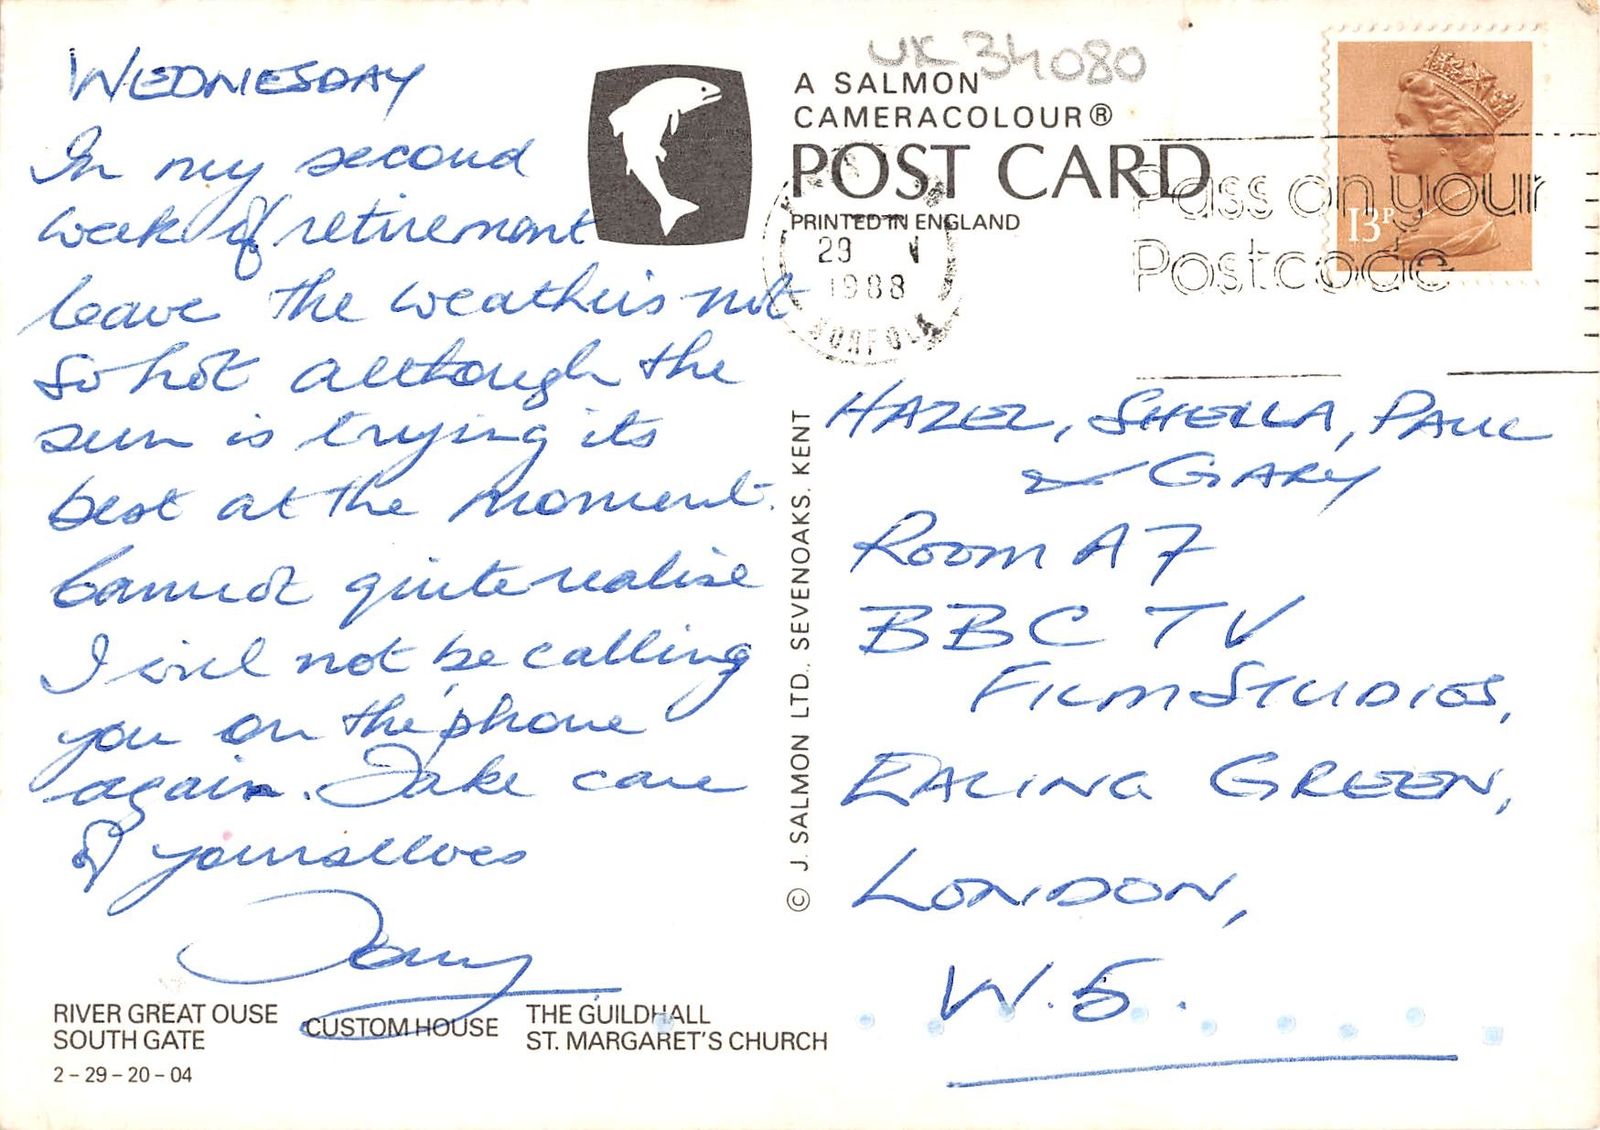 WEDNESDAY
In my second
week of retirement
leave the weather is not
so hot although the
sun is trying its
best at the moment.
Cannot quite realise
I will not be calling
you on the phone
again. Take care
of yoursellves
Tony
RIVER GREAT OUSE
SOUTH GATE
CUSTOM HOUSE
THE GUILDHALL
ST. MARGARET'S CHURCH
2-29-20-04
© J. SALMON LTD., SEVENOAKS. KENT
UK 34080
A SALMON
CAMERACOLOUR®
POST CARD
PRINTED IN ENGLAND
1988
NORFOLK
Pass on your
Postcode
13P
HAZEL, SHEILA, PAUL
& GARY
ROOM A7
BBC TV
FILM STUDIOS,
EALING GREEN,
LONDON,
W.5.